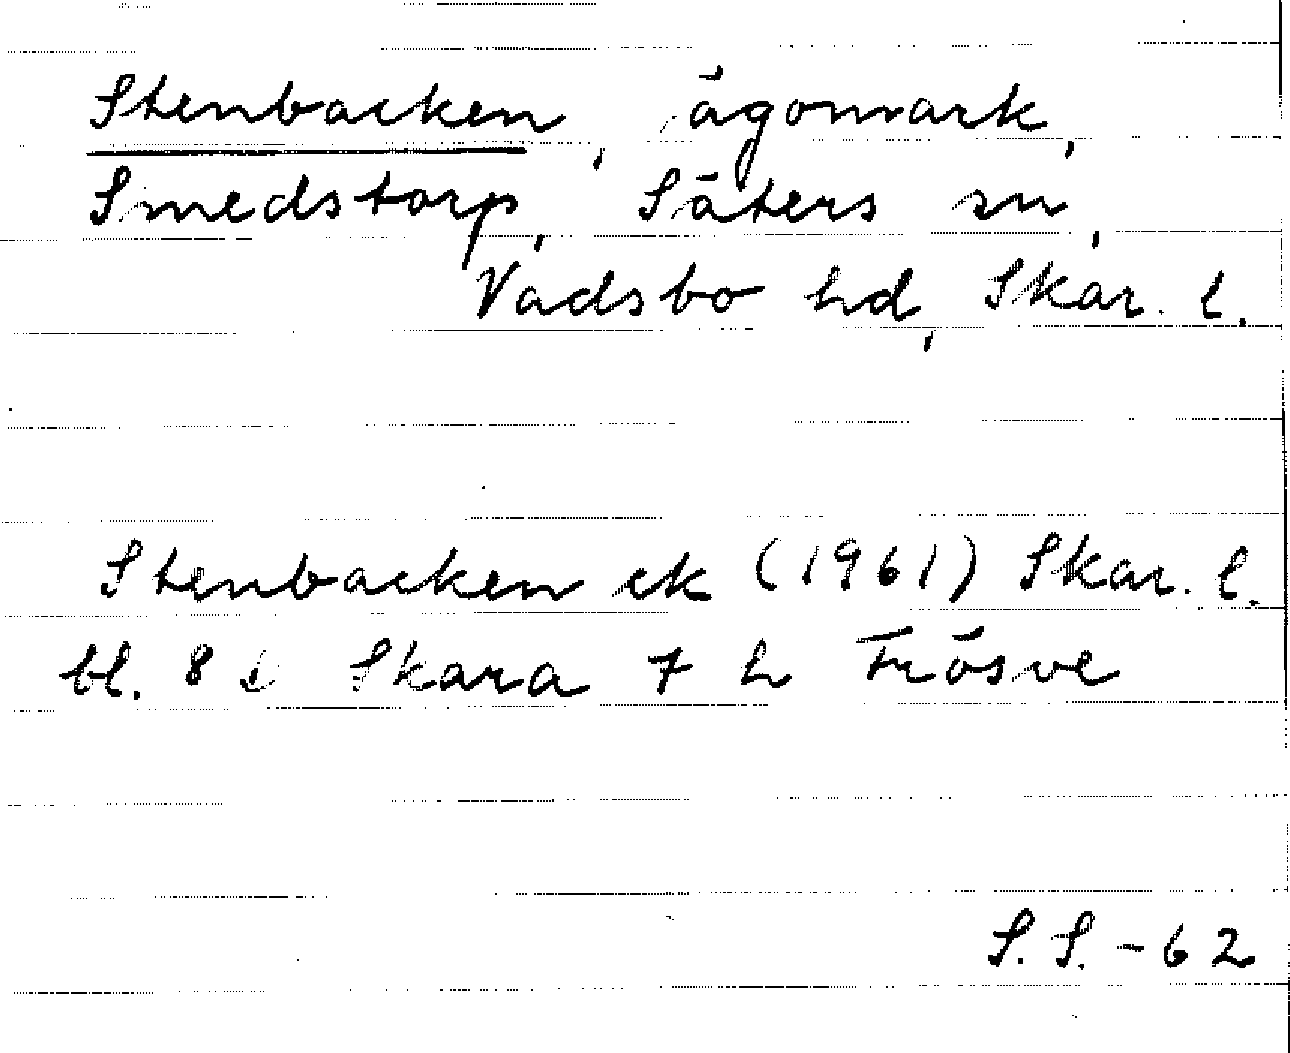 Stenbacken, ägomark,
Smedstorp, Säters sn,
Vadsbo hd, Skar. l.
Stenbacken ek (1961) Skar. l.
bl. 8 d Skara 7 h Frösve
S.S.-62